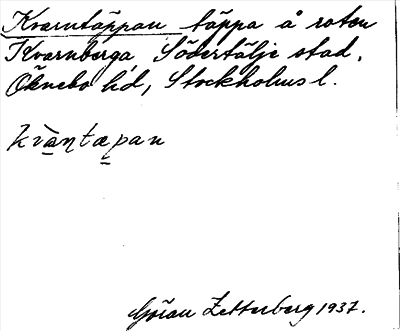 Kvarntäppan täppa å roten
Kvarnberga, Södertälje stad,
Öknebo hd, Stockholms l.
kvàɳtæpan
Göran Zetterberg 1937.